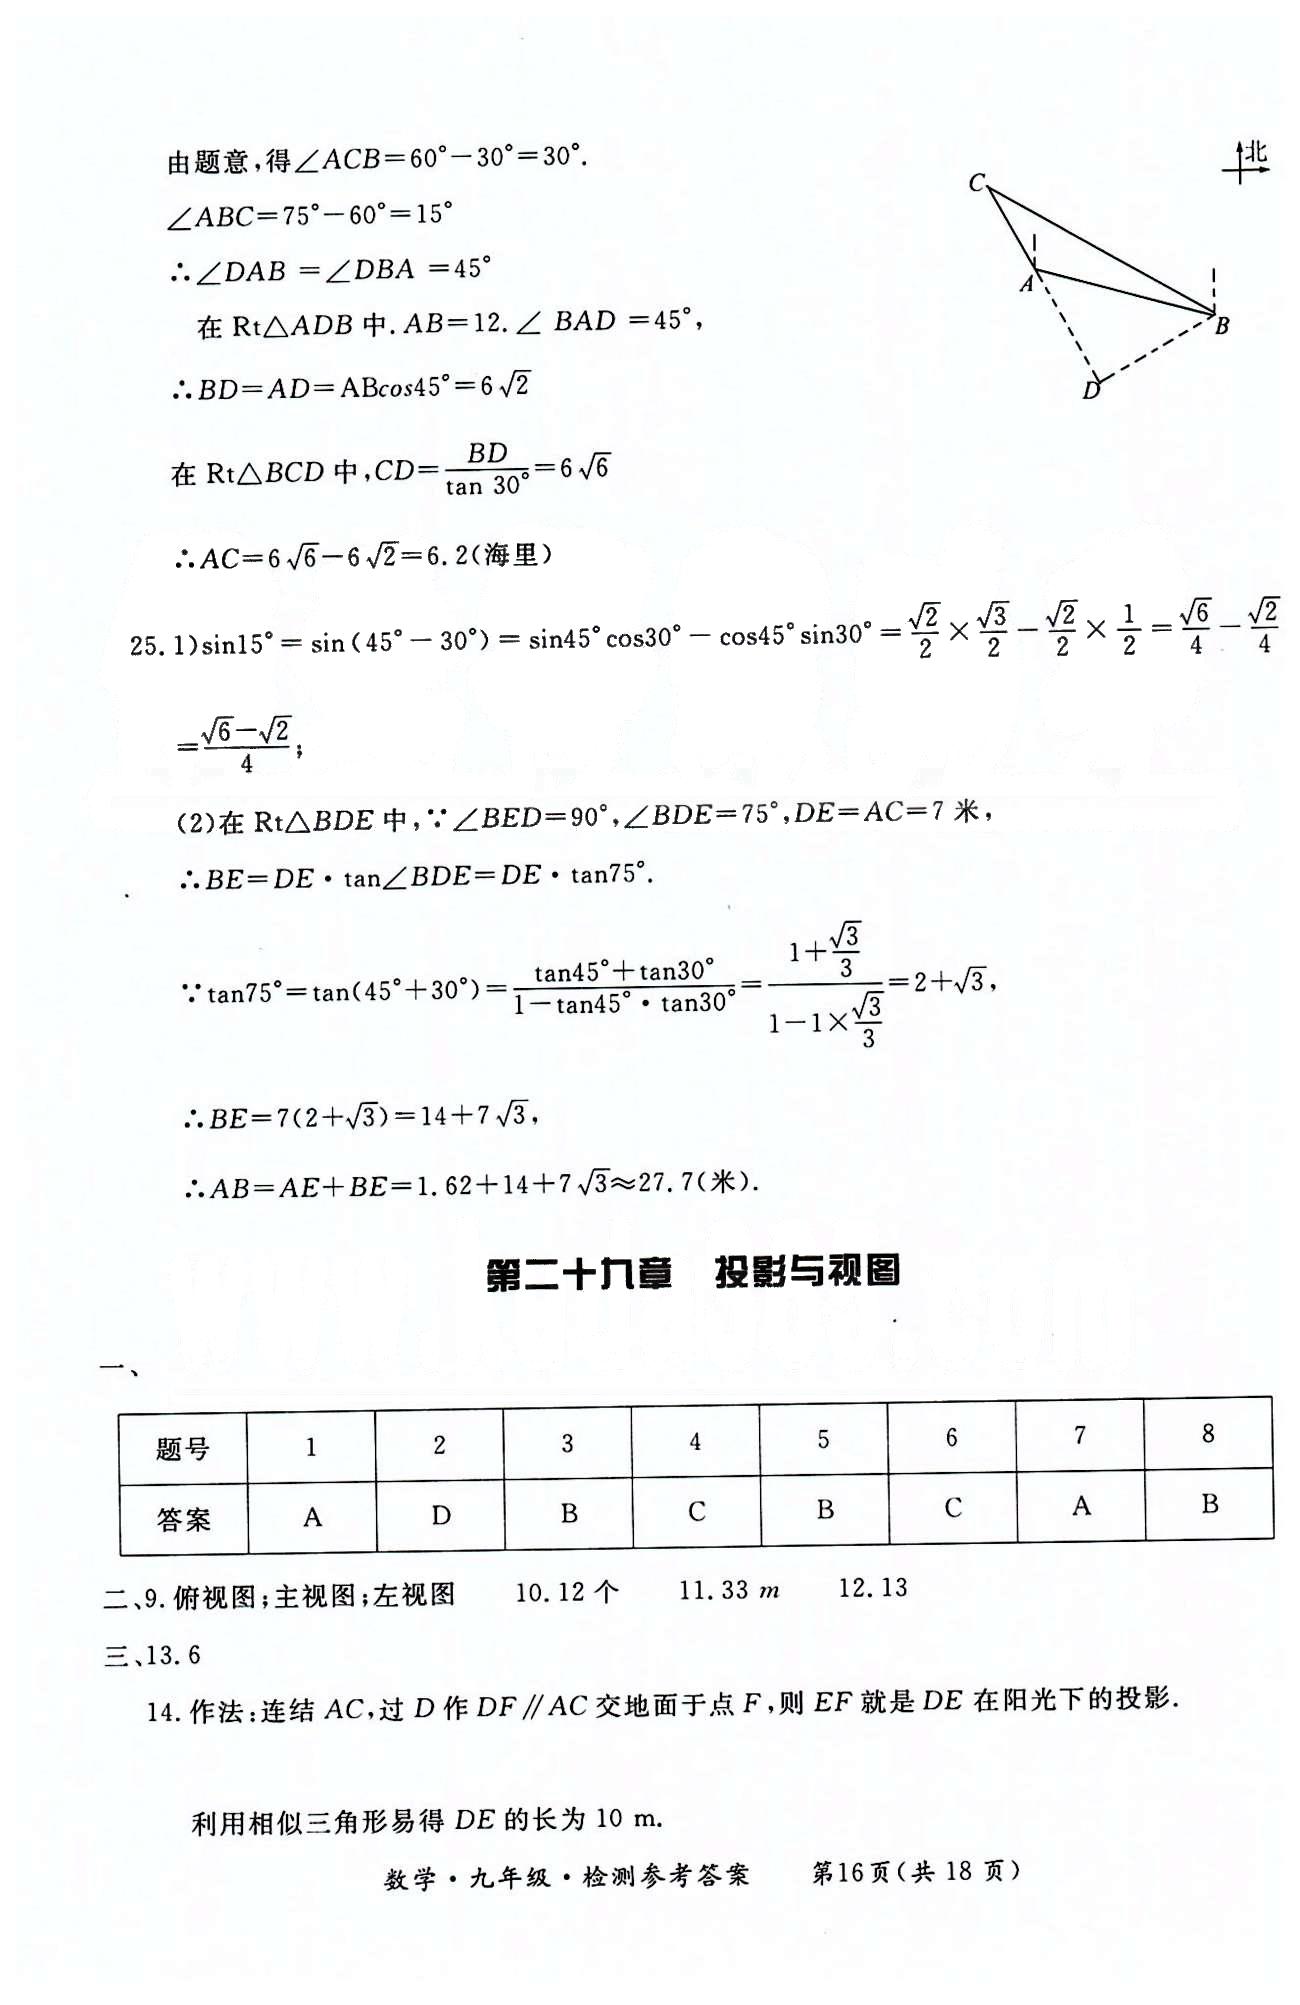 由题意,得∠ACB=60°-30°=30°.
北
C
∠ABC=75°-60°=15°
∴∠DAB =∠DBA =45°
A
在 Rt△ADB 中. AB=12.∠ BAD =45°,
B
∴BD=AD=ABcos45°=6√2
D
在 Rt△BCD 中,CD=BD/tan 30°=6√6
∴AC=6√6-6√2=6.2(海里)
25.1)sin15°=sin(45°-30°)=sin45°cos30°-cos45°sin30°=√2/2×√3/2-√2/2×1/2=√6/4-√2/4
=(√6-√2)/4;
(2)在 Rt△BDE 中,∵∠BED=90°,∠BDE=75°,DE=AC=7 米,
∴BE=DE·tan∠BDE=DE·tan75°.
∵tan75°=tan(45°+30°)=(tan45°+tan30°)/(1-tan45°·tan30°)=(1+√3/3)/(1-1×√3/3)=2+√3,
∴BE=7(2+√3)=14+7√3,
∴AB=AE+BE=1.62+14+7√3≈27.7(米).
第二十九章 投影与视图
一、
题号 1 2 3 4 5 6 7 8
答案 A D B C B C A B
二、9.俯视图;主视图;左视图 10.12个 11.33 m 12.13
三、13.6
14.作法:连结 AC,过 D 作 DF∥AC 交地面于点 F,则 EF 就是 DE 在阳光下的投影.
利用相似三角形易得 DE 的长为 10 m.
数学·九年级·检测参考答案 第16页(共 18 页)